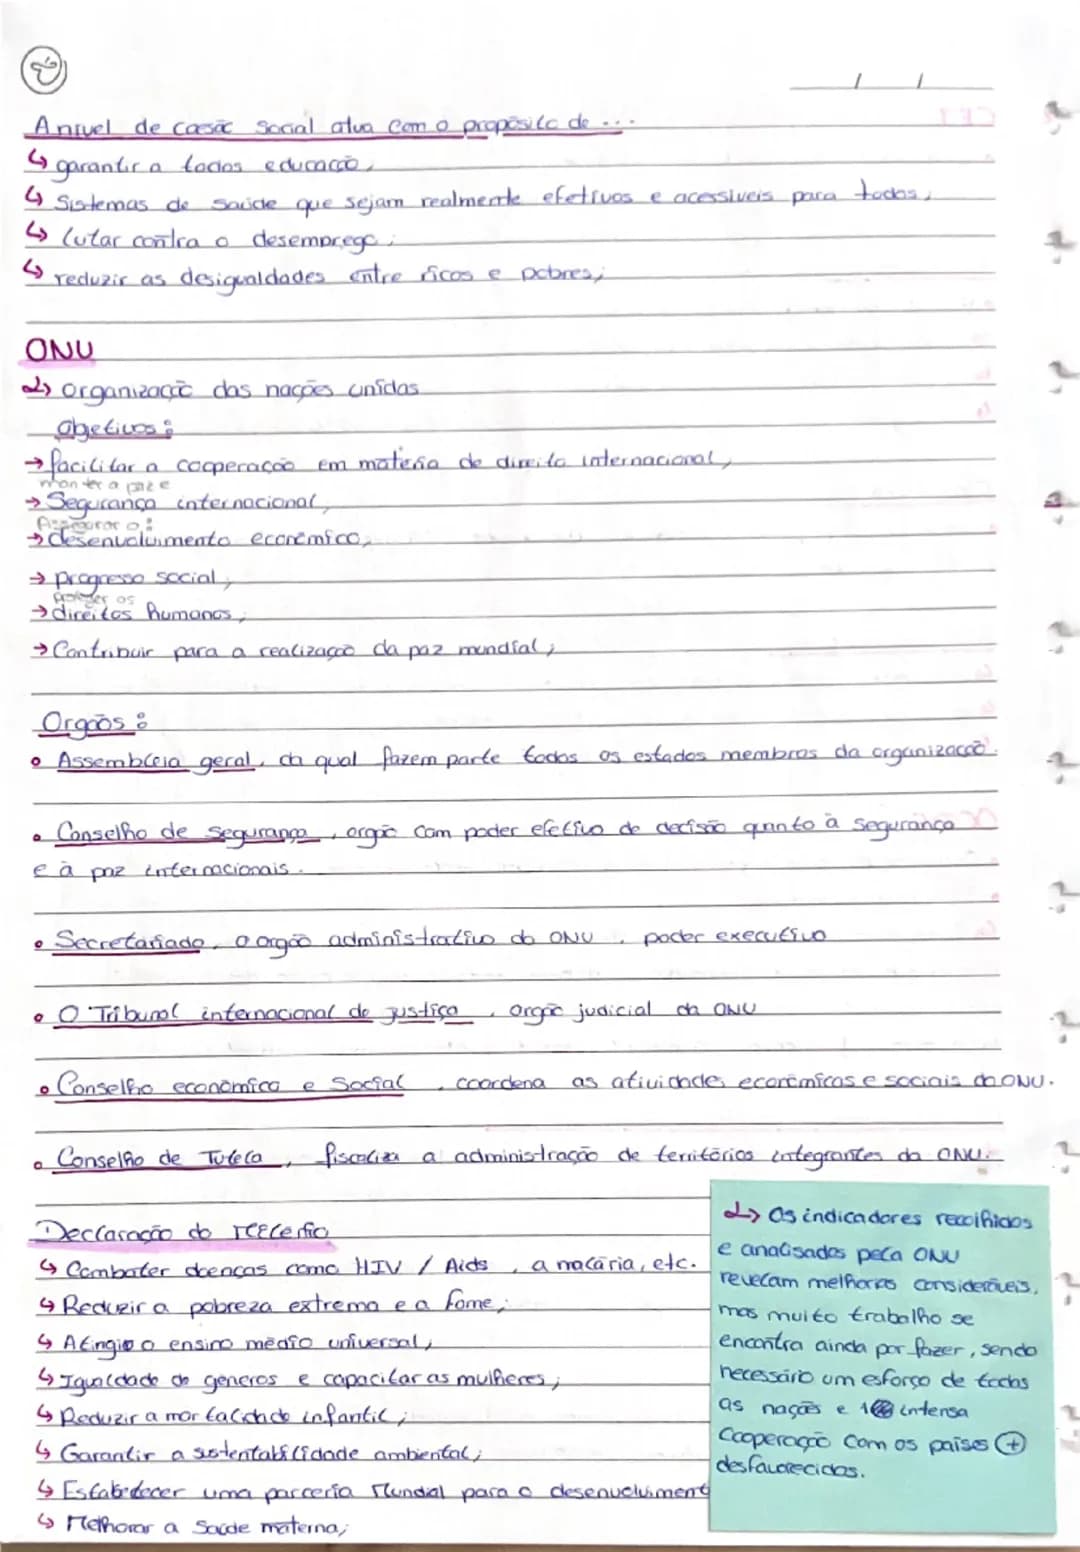 A nível de coesão social atua com o propósito de ...
↳ garantir a todos educação,
↳ Sistemas de saúde que sejam realmente efetivos e acessíveis para todos,
↳ lutar contra o desemprego;
↳ reduzir as desigualdades entre ricos e pobres;
ONU
↳ Organização das nações unidas
Objetivos:
→ facilitar a cooperação em matéria de direito internacional,
manter a paz e
→ Segurança internacional,
Assegurar o:
→ desenvolvimento económico,
→ progresso social,
proteger os
→ direitos humanos,
→ Contribuir para a realização da paz mundial;
Orgãos:
• Assembleia geral, da qual fazem parte todos os estados membros da organização.
• Conselho de Segurança, orgão com poder efetivo de decisão quanto à segurança
e à paz internacionais.
• Secretariado, o orgão administrativo da ONU, poder executivo
• O Tribunal internacional de justiça, orgão judicial da ONU
• Conselho económico e Social, coordena as atividades económicas e sociais da ONU.
• Conselho de Tutela, fiscaliza a administração de territórios integrantes da ONU.
Declaração do Milénio
↳ Combater doenças como HIV / Aids, a malária, etc.
↳ Reduzir a pobreza extrema e a fome;
↳ Atingir o ensino médio universal,
↳ Igualdade de géneros e capacitar as mulheres;
↳ Reduzir a mortalidade infantil;
↳ Garantir a sustentabilidade ambiental;
↳ Estabelecer uma parceria Mundial para o desenvolviment
↳ Melhorar a Saúde materna;
↳ Os indicadores recolhidos
e analisados pela ONU
revelam melhorias consideráveis,
mas muito trabalho se
encontra ainda por fazer, sendo
necessário um esforço de todas
as nações e intensa
Cooperação com os países +
desfavorecidos.